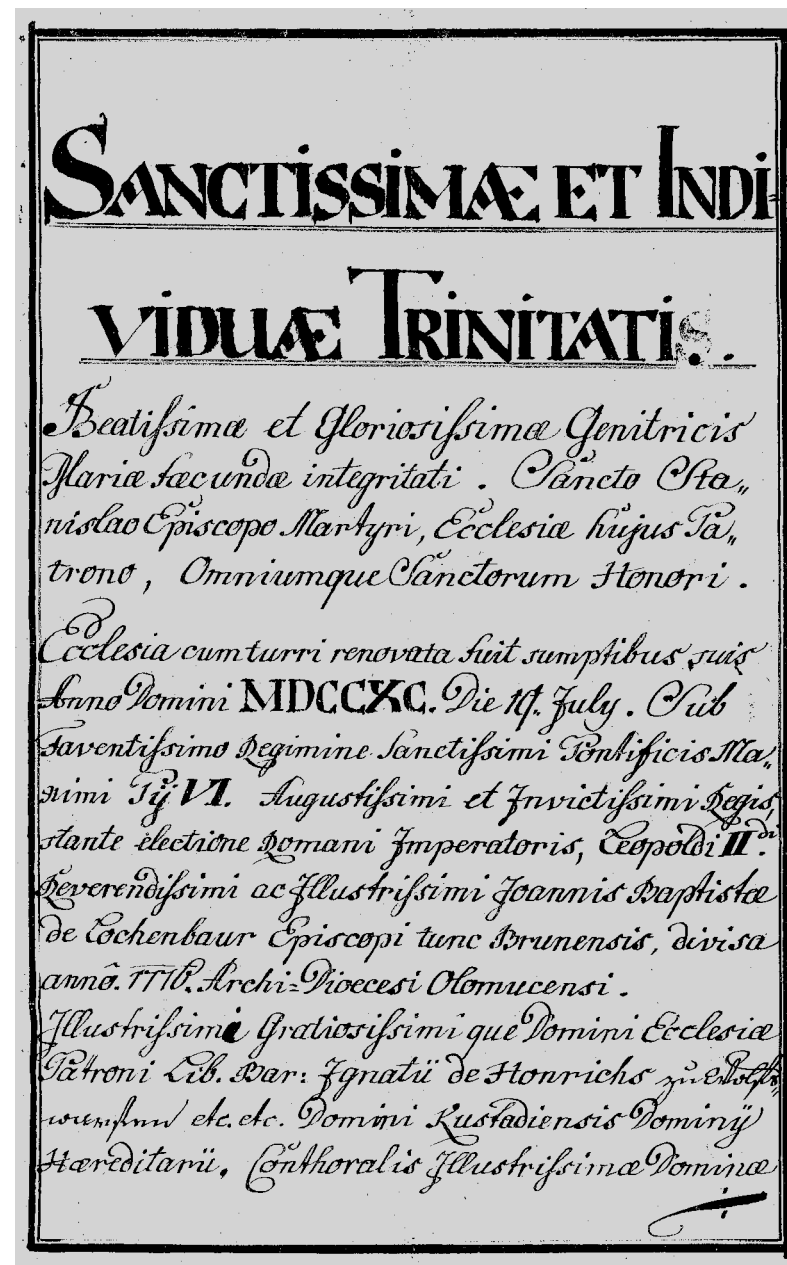 SANCTISSIMÆ ET INDI=
VIDUÆ TRINITATIS.
Beatissimæ et Gloriosissimæ Genitricis
Mariæ fæcundæ integritati. Sancto Sta„
nislao Episcopo Martyri, Ecclesiæ hujus Pa„
trono, Omniumque Sanctorum Honori.
Ecclesia cum turri renovata fuit sumptibus suis
Anno Domini MDCCXC. Die 19. July. Sub
Faventissimo Regimine Sanctissimi Pontificis Ma„
ximi Pij VI. Augustissimi et Invictissimi Regis,
stante electione Romani Imperatoris, Leopoldi II.di
Reverendissimi ac Illustrissimi Joannis Baptistæ
de Lochenbaur Episcopi tunc Brunensis, divisa
anno. 1776. Archi=Dioecesi Olomucensi.
Illustrissimi Gratiosissimique Domini Ecclesiæ
Patroni Lib. Bar: Ignatii de Honrichs zu
etc. etc. Domini Kustadiensis Dominij
Hæreditarii, Conthoralis Illustrissimæ Dominæ